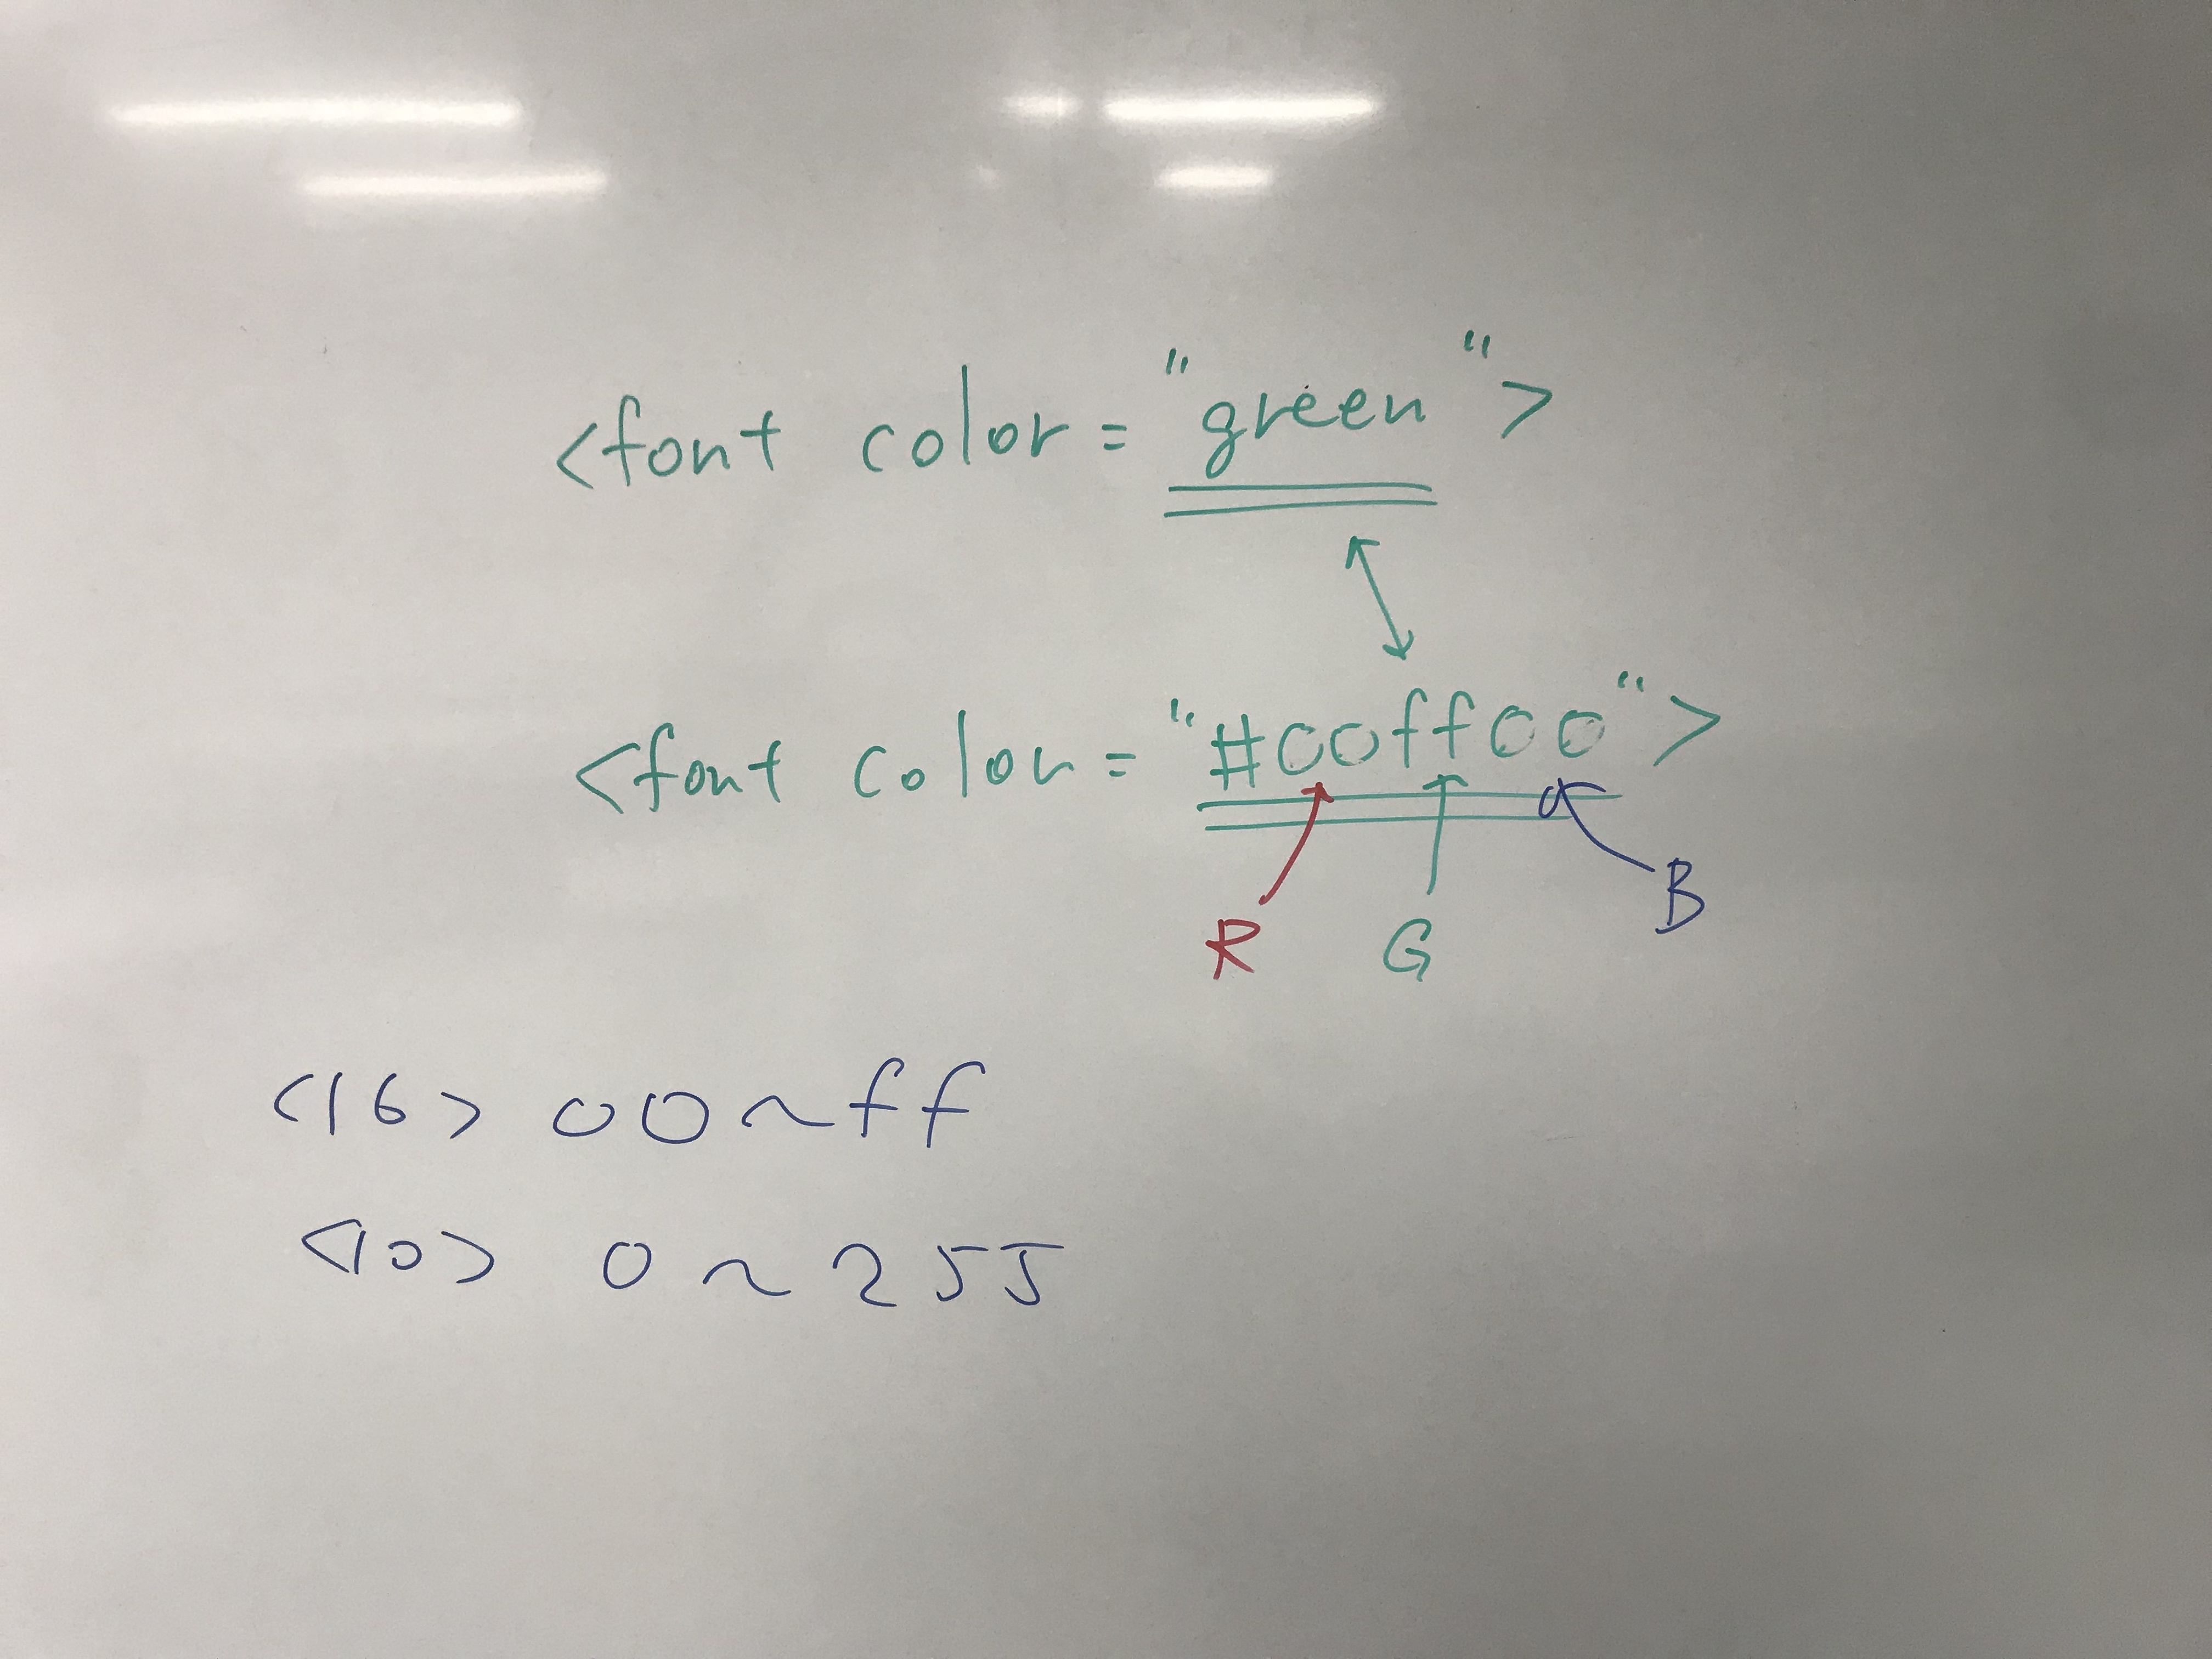 <font color="green">
<font color="#00ff00">
R G B
<16> 00~ff
<10> 0~255